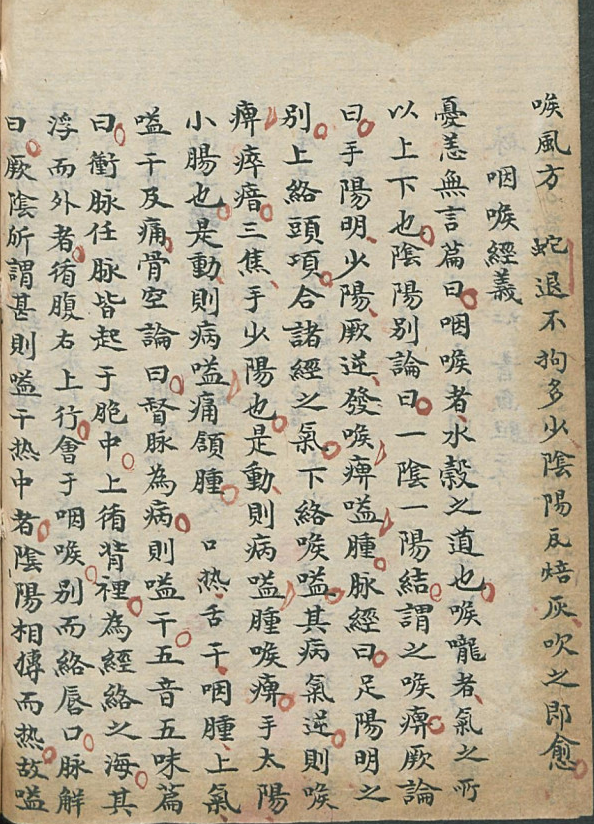 喉風方　蛇退不狗多少陰陽瓦焙灰吹之即愈
咽喉經義
憂恚無言篇曰咽喉者水穀之道也喉嚨者氣之所
以上下也陰陽別論曰一陰一陽結謂之喉痹厥論
曰手陽明少陽厥逆發喉痹嗌腫脉經曰足陽明之
別上絡頭項合諸經之氣下絡喉嗌其病氣逆則喉
痹瘁瘖三焦手少陽也是動則病嗌腫喉痹手太陽
小腸也是動則病嗌痛頷腫　口热舌干咽腫上氣
嗌干及痛骨空論曰督脉為病則嗌干五音五味篇
曰衝脉任脉皆起于胞中上循背裡為經絡之海其
浮而外者循腹右上行會于咽喉別而絡唇口脉解
曰厥陰所謂甚則嗌干热中者陰陽相摶而热故嗌